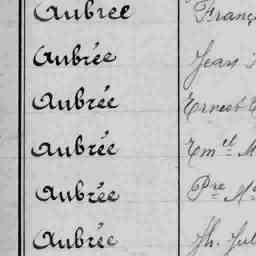 Aubrée Franç
Aubrée Jean
Aubrée Ernest
Aubrée Em.el M
Aubrée Pre M
Aubrée Jh. Jul